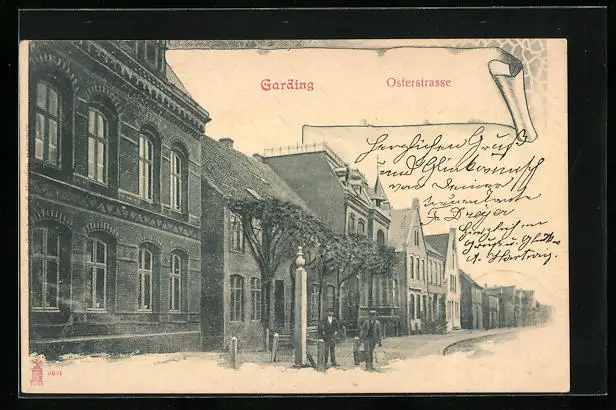 Garding
Osterstrasse
Herzlichen Gruß
und Glückwunsch
von Deiner
Fr. Dreyer
Herzlichen
Gruß u. Glückw.
A. Hartwig
6691